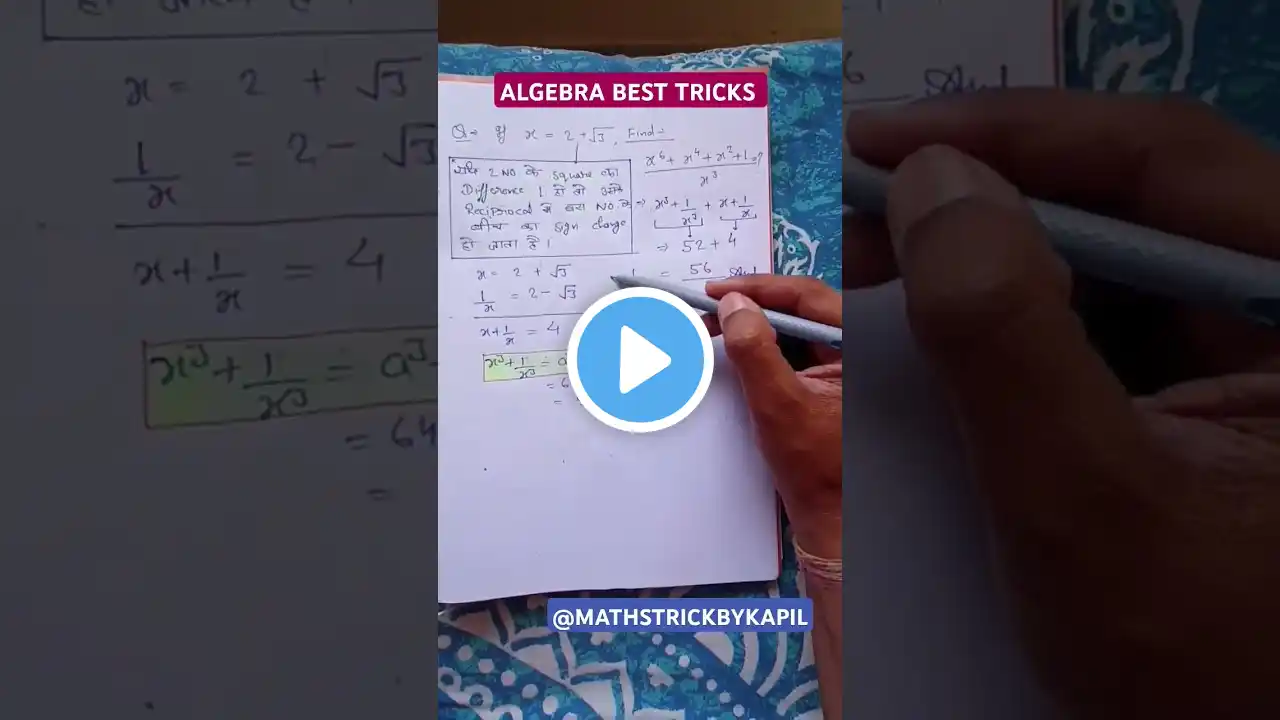 ALGEBRA BEST TRICKS
Q⇒ If x = 2 + √3, Find:-
x⁶ + x⁴ + x² + 1 / x³ = ?
यदि 2 NO के square का
Difference 1 हो तो उसके
Reciprocal में बस NO. के
बीच का sign change
हो जाता है।
⇒ x³ + 1/x³ + x + 1/x
⇒ 52 + 4
= 56
x = 2 + √3
1/x = 2 - √3
x + 1/x = 4
x³ + 1/x³ = a³
= 6
=
@MATHSTRICKBYKAPIL